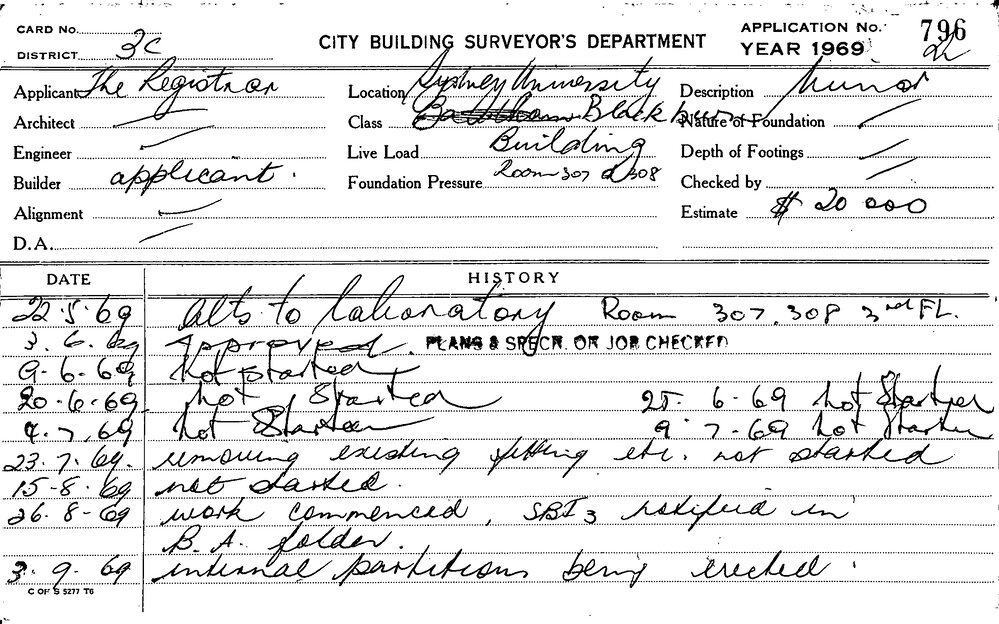 CARD No.
DISTRICT 3C
CITY BUILDING SURVEYOR'S DEPARTMENT
APPLICATION No. 796
YEAR 1969
Applicant The Registrar
Location Sydney University
Description Minor
Architect —
Class Blackburn
Nature of Foundation —
Engineer —
Live Load Building
Depth of Footings —
Builder applicant.
Foundation Pressure Room 307 & 308
Checked by —
Alignment —
Estimate $ 20 000
D.A. —
DATE HISTORY
22.5.69 Alts to laboratory Room 307, 308 3rd FL.
3.6.69 Approved. PLANS & SPECN. ON JOB CHECKED
9-6-69 Not started
20-6-69 Not Started 25.6-69 Not Started
4.7.69 Not Started 9.7-69 Not Started
23.7.69. removing existing fitting etc. not started
15-8.69 not started.
26.8-69 work commenced, SBI 3 notified in
B.A. folder.
3.9.69 internal partitions being erected.
C OF S 5277 T6